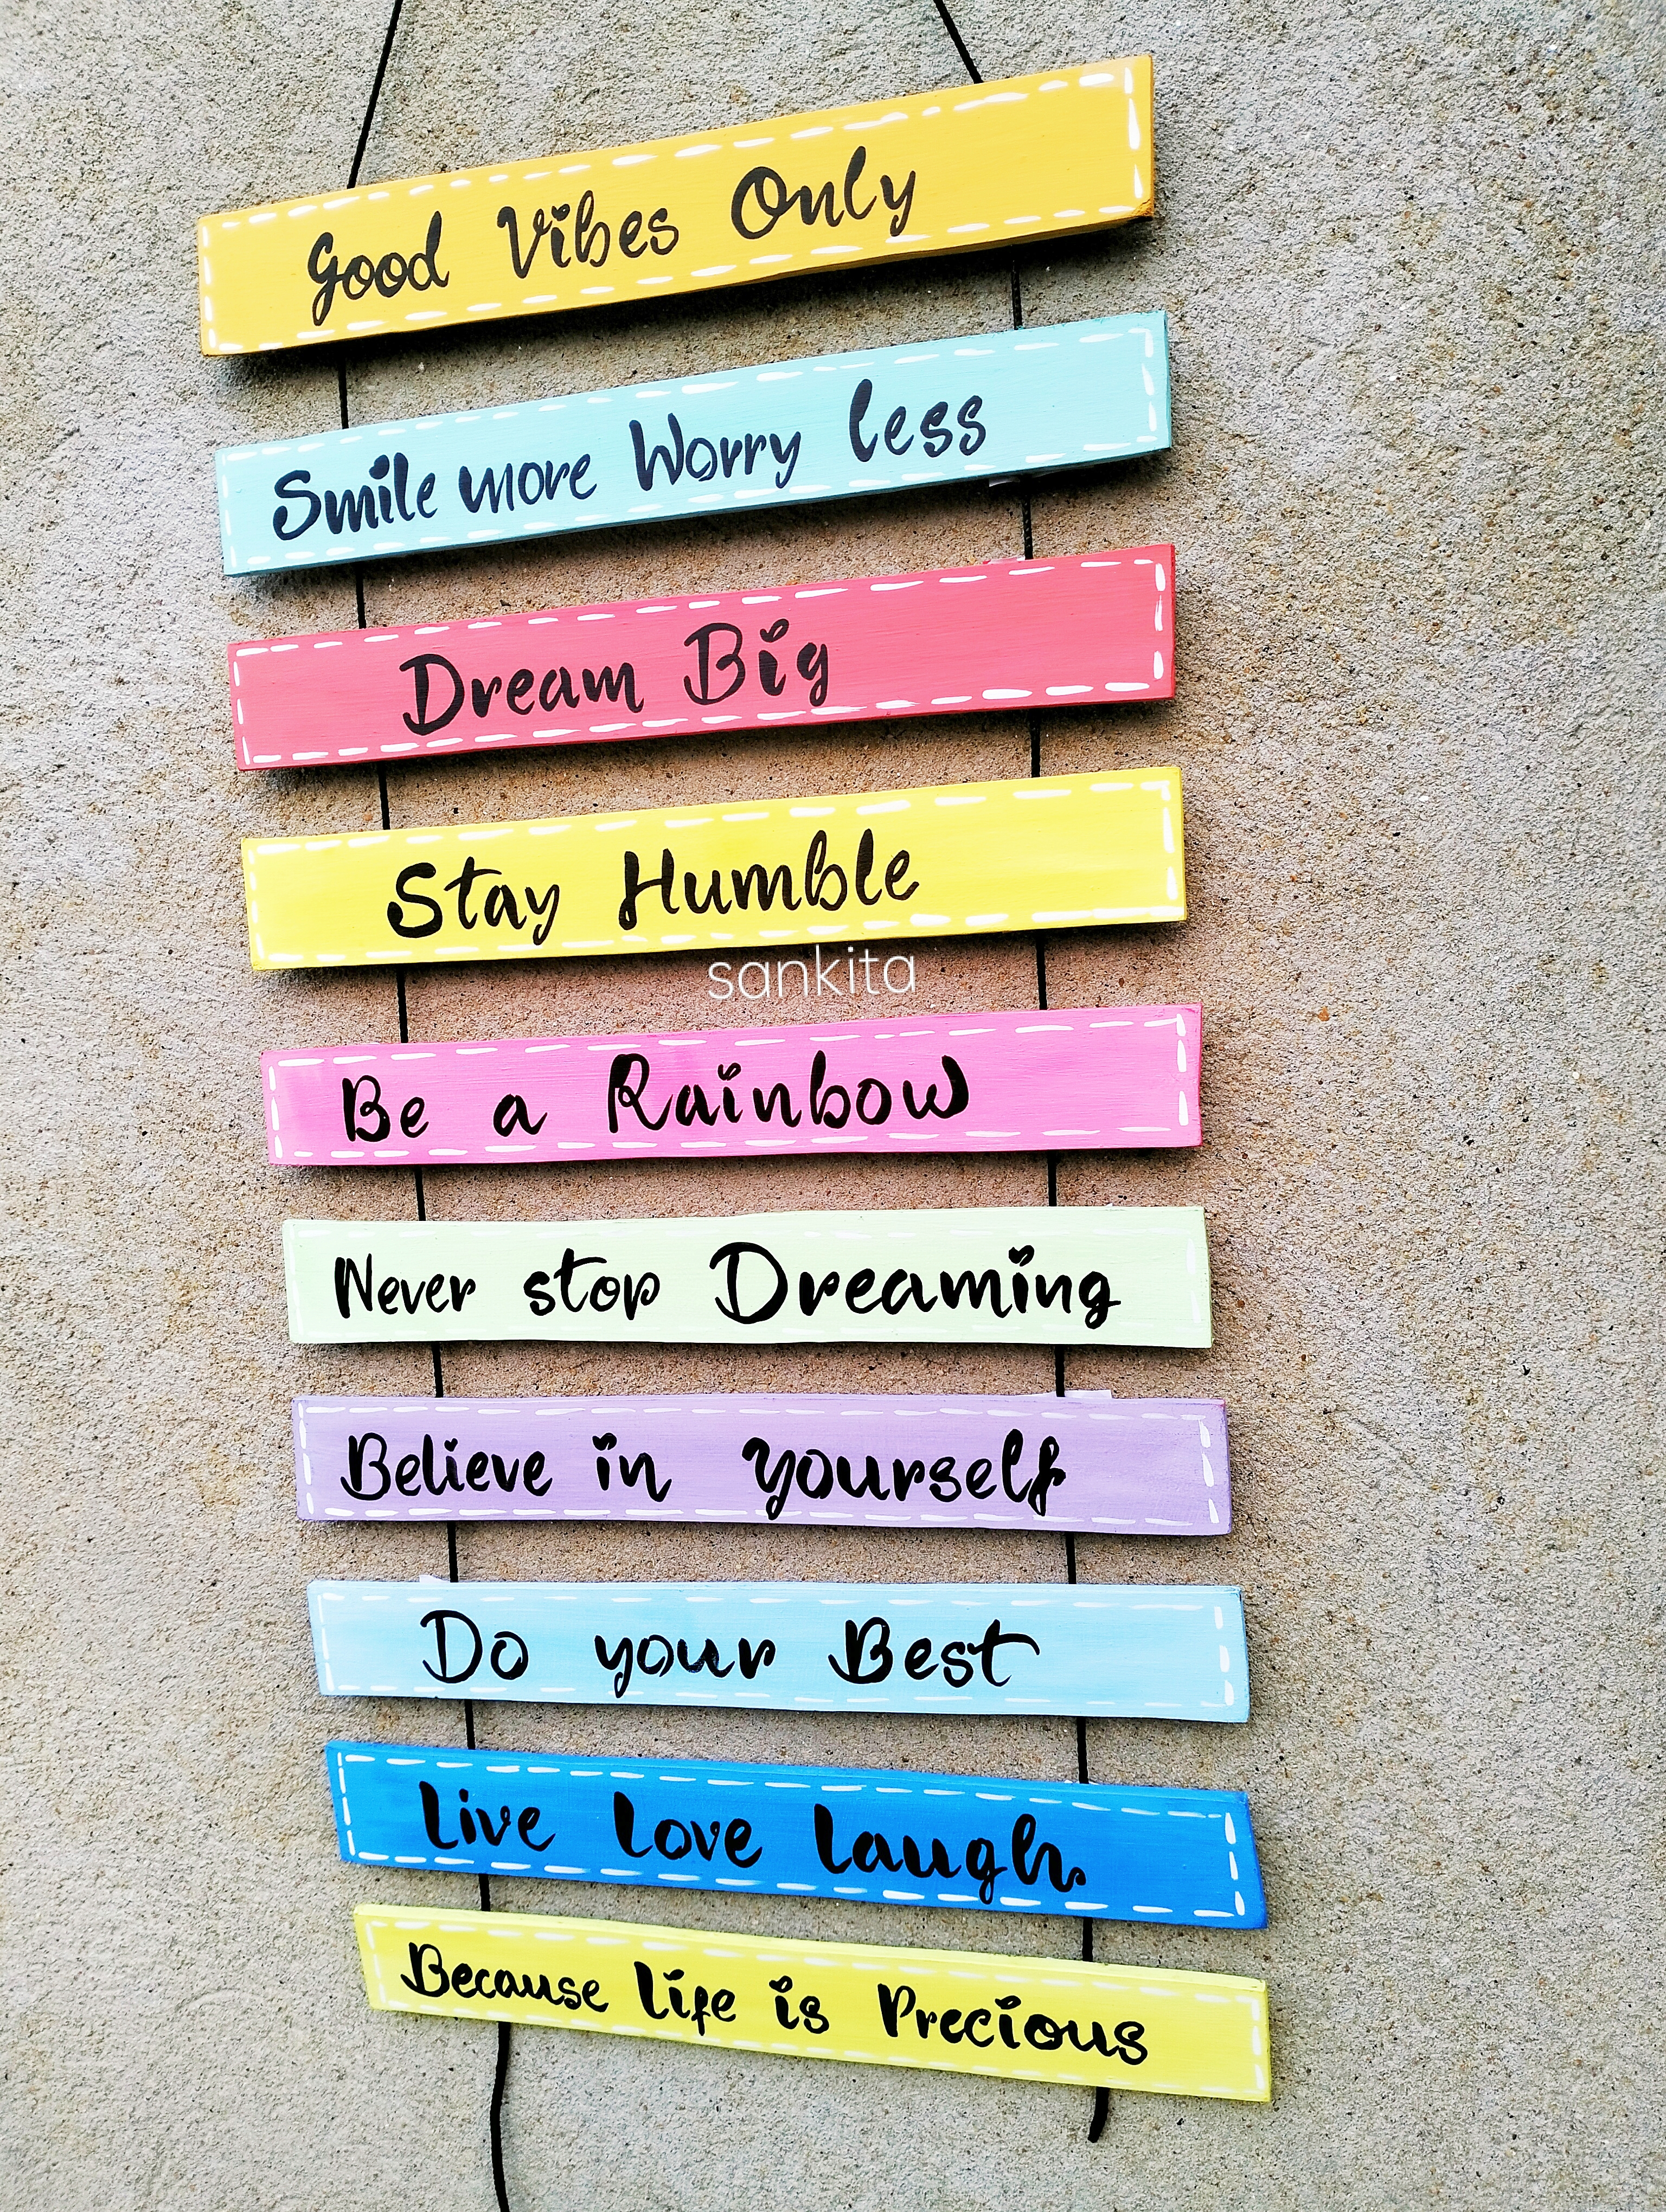 Good Vibes Only
Smile more Worry less
Dream Big
Stay Humble
sankita
Be a Rainbow
Never stop Dreaming
Believe in yourself
Do your Best
Live Love Laugh
Because Life is Precious